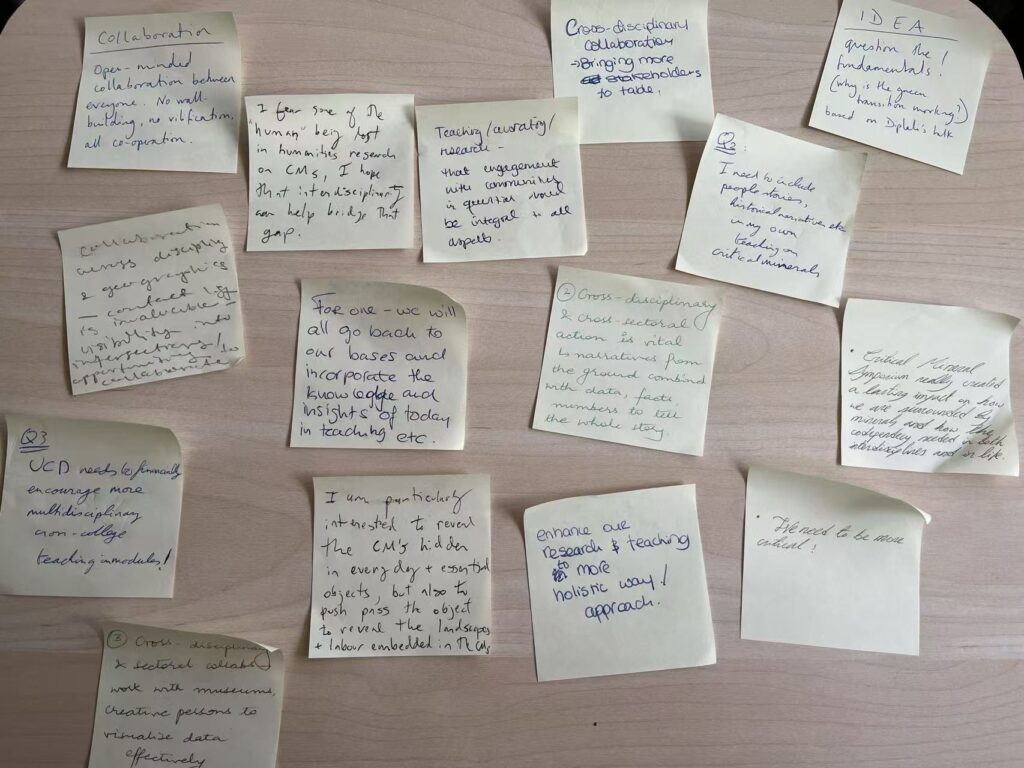 Collaboration
Open-minded
collaboration between
everyone. No wall-
building, no vilification,
all co-operation.
I fear some of the
"human" being lost
in humanities research
on CMs, I hope
that interdisciplinary
can help bridge that
gap.
Teaching/curating/
research -
that engagement
with communities
in question should
be integral to all
aspects.
Cross-disciplinary
collaboration
→Bringing more
stakeholders
to table.
IDEA
question the!
fundamentals!
(why is the green
transition working?)
based on talk
Q2:
I need to include
people stories,
historical narratives etc
in my own
teaching on
critical minerals
Collaboration
across disciplin
& geographics
— contact list
is invaluable —
visibility into
intersections/
opportunities to
collaborate
For one - we will
all go back to
our bases and
incorporate the
knowledge and
insights of today
in teaching etc.
② Cross-disciplinary
& cross-sectoral
action is vital
to narratives from
the ground combined
with data, facts,
numbers to tell
the whole story.
• Critical Mineral
Symposium really created
a lasting impact on how
we are surrounded by
minerals and how this
codependency needed in both
interdisciplines and in life.
Q3
UCD needs to financially
encourage more
multidisciplinary
cross-college
teaching in modules!
I am particularly
interested to reveal
the CM's hidden
in everyday + essential
objects, but also to
push pass the object
to reveal the landscapes
+ labour embedded in the CMs
enhance our
research & teaching
to more
holistic way/
approach.
• We need to be more
critical!
③ Cross disciplinary
& sectoral collab
work with museums,
creative persons to
visualize data
effectively